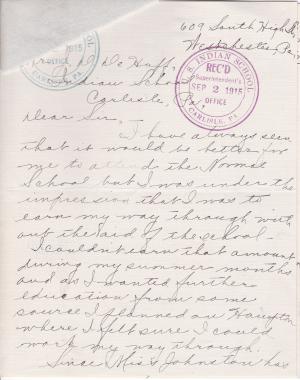 609 South High St.
Westchester, Pa.,
De Huff,
Indian School
Carlisle, Pa.,
U. S. INDIAN SCHOOL
REC'D
Superintendent's
SEP 2 1915
OFFICE
CARLISLE, PA.
1915
OFFICE
CARLISLE, PA.
Dear Sir,
I have always seen
that it would be better for
me to attend the Normal
School but I was under the
impression that I was to
earn my way through with
out the aid of the school.
I couldn't earn that amount
during my summer months
and as I wanted further
education from some
source I planned on Hampton
where I felt sure I could
work my way through.
Since Miss Johnston has